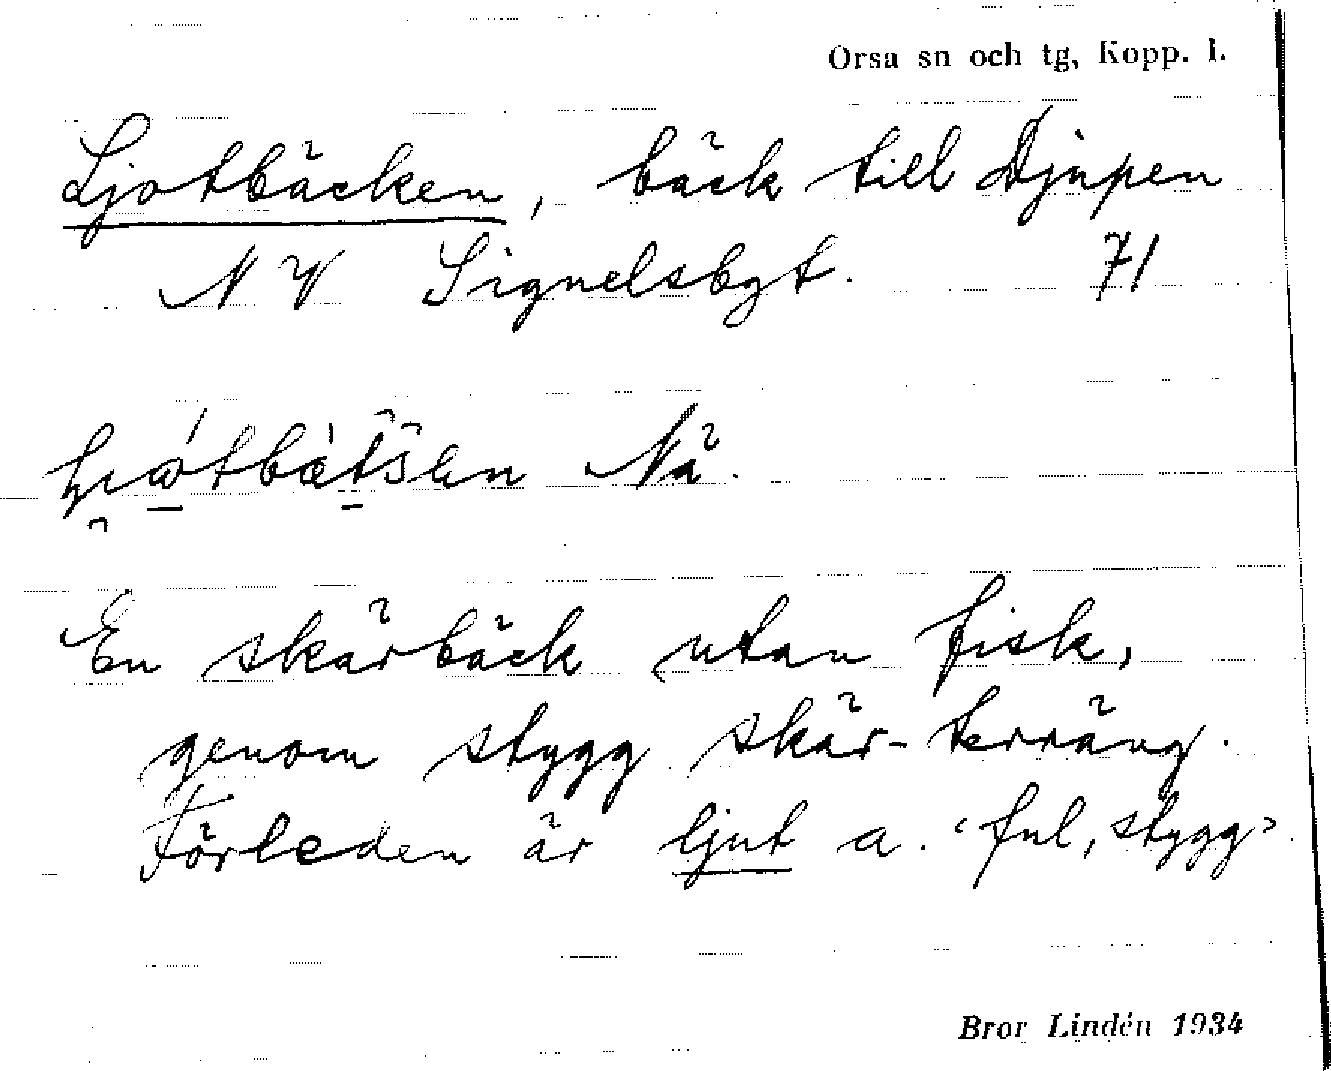 Orsa sn och tg, Kopp. l.
Ljotbäcken, bäck till Djupen
NV Signelsbgt. 71
Nå.
En skärbäck utan fisk,
genom stygg skär-terräng.
Förleden är ljut a. ‘ful, stygg’.
Bror Lindén 1934